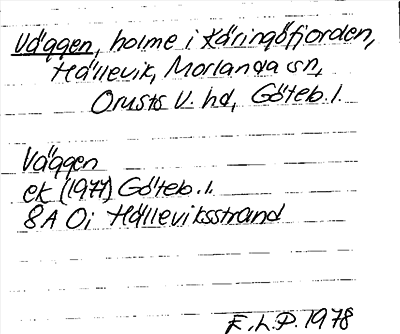 Väggen, holme i Käringöfjorden,
Hällevik, Morlanda sn,
Orusts V. hd, Göteb. l.
Väggen
ek (1977) Göteb. l.
8A 0i Hälleviksstrand
F.L.P. 1978